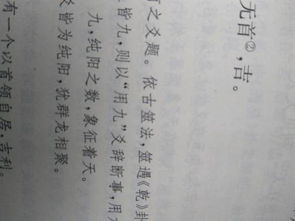 无首②,吉。
之爻题。依古筮法,筮遇《乾》卦
皆九,则以“用九”爻辞断事,用
九,纯阳之数,象征着天。
爻皆为纯阳,犹群龙相聚。
有一个以首领自居,吉利。